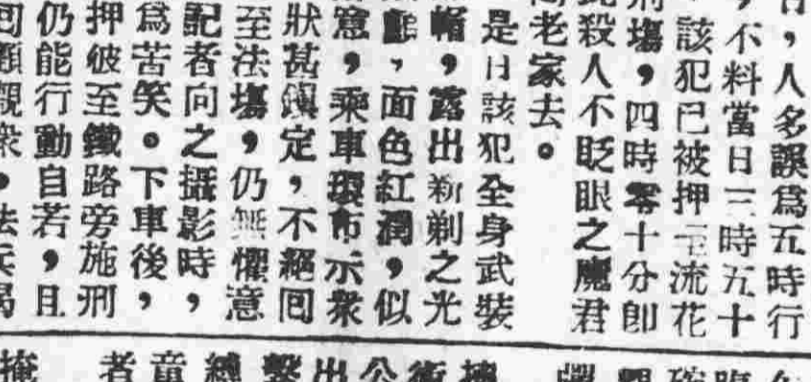 ,人多誤爲五時行
,不料當日三時五十
該犯已被押至流花
刑塲,四時零十分卽
此殺人不眨眼之魔君
老家去。
是日該犯全身武裝
帽,露出新剃之光
顱,面色紅潤,似
意,乘車環市示衆
狀甚鎮定,不絕回
至法塲,仍無懼意
記者向之攝影時,
爲苦笑。下車後,
押彼至鐵路旁施刑
仍能行動自若,且
回顧觀衆。法兵喝
出
童
者
掩